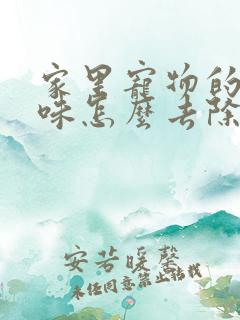 家里寵物的
味怎麼去除
安若暖馨
未经同意禁止搭我